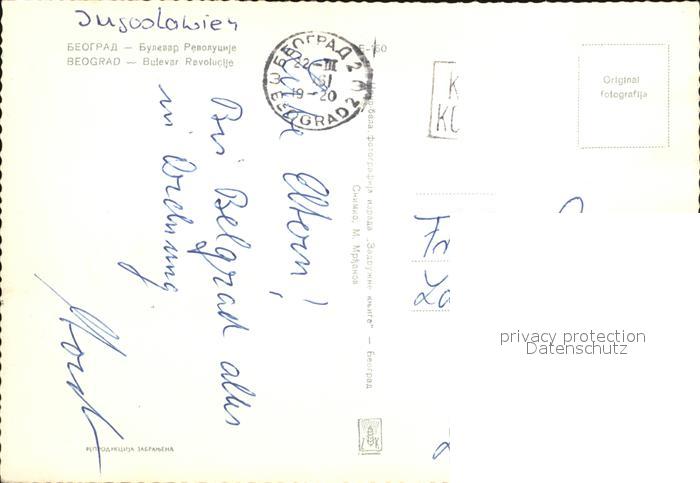 Jugoslawien
БЕОГРАД — Булевар Револуције
BEOGRAD — Bulevar Revolucije
БЕОГРАД 2
22-III
61
19-20
BEOGRAD 2
Original
fotografija
Liebe Eltern!
Bis Belgrad alles
in Ordnung
Horst
фотографија израда „Задружне књиге“ — Београд
Снимио: М. Мрђанов
K
KU
Fr
La
РЕПРОДУКЦИЈА ЗАБРАЊЕНА
privacy protection
Datenschutz